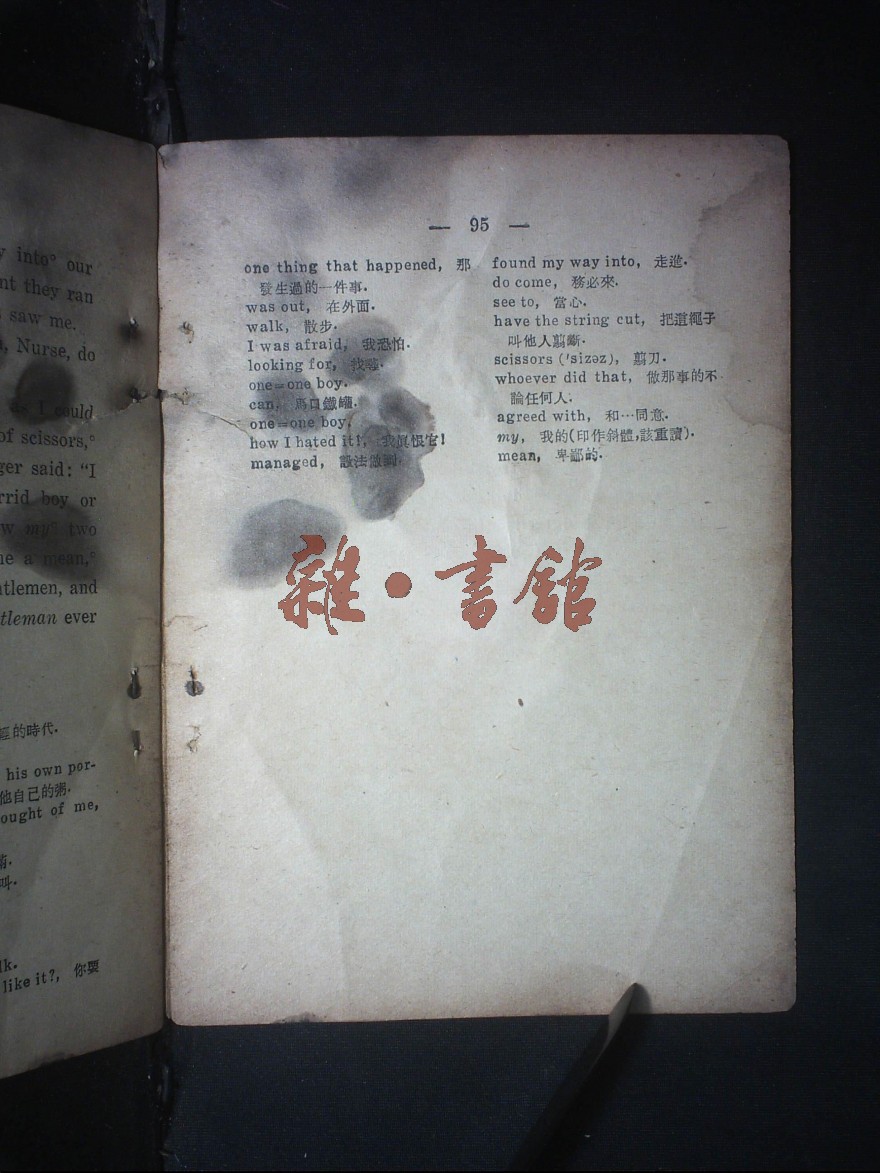 y into° our
nt they ran
s saw me.
, Nurse, do
I could
of scissors,°
ger said: "I
rrid boy or
w my° two
ne a mean,°
ntlemen, and
tleman ever
的時代.
his own por-
他自己的粥.
ought of me,
叫.
lk.
like it?, 你要
— 95 —
one thing that happened, 那
發生過的一件事.
was out, 在外面.
walk, 散步.
I was afraid, 我恐怕.
looking for, 找尋.
one=one boy.
can, 馬口鐵罐.
one=one boy.
how I hated it!, 我眞恨它!
managed, 設法做到.
found my way into, 走進.
do come, 務必來.
see to, 當心.
have the string cut, 把這繩子
叫他人翦斷.
scissors ('sizəz), 翦刀.
whoever did that, 做那事的不
論任何人.
agreed with, 和…同意.
my, 我的(印作斜體,該重讀).
mean, 卑鄙的.
雜•書館